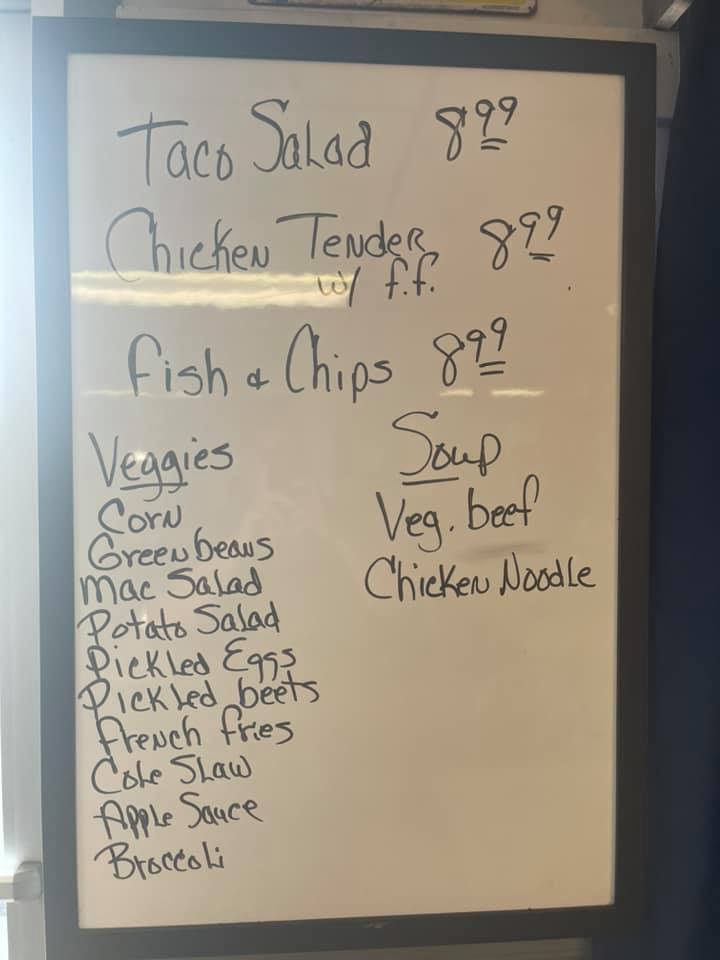 Taco Salad 8.99
Chicken Tender 8.99
w/ f.f.
Fish & Chips 8.99
Veggies
Corn
Green beans
Mac Salad
Potato Salad
Pickled Eggs
Pickled beets
French fries
Cole Slaw
Apple Sauce
Broccoli
Soup
Veg. beef
Chicken Noodle